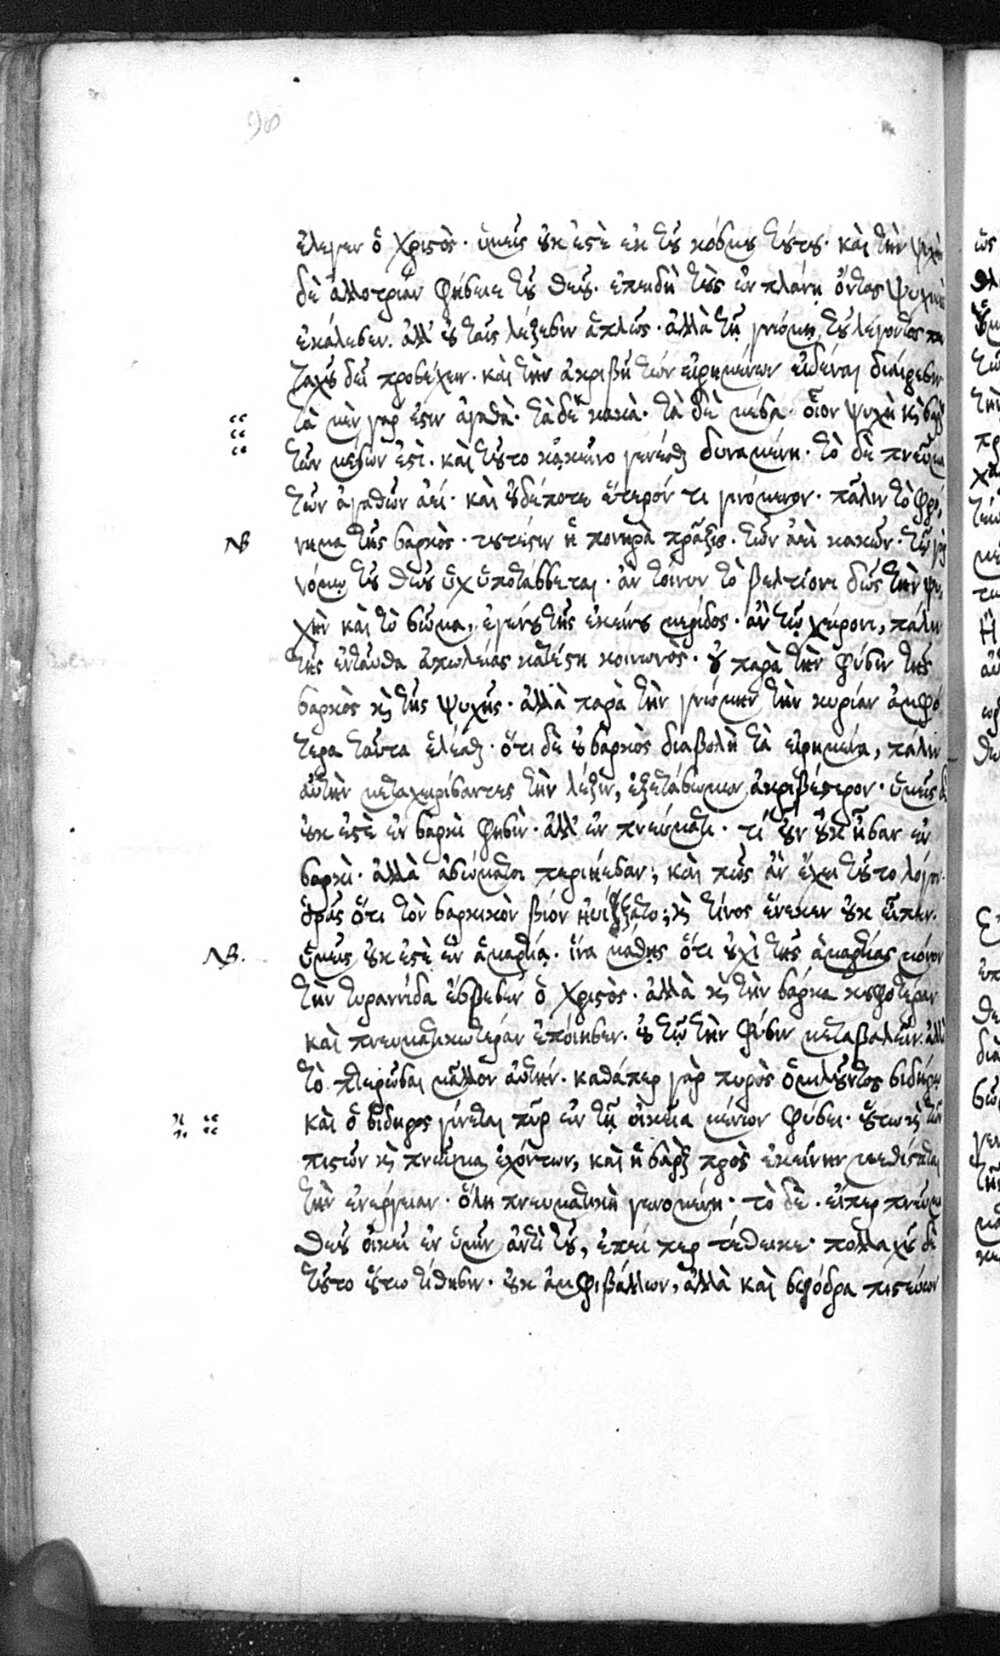 98
ἔλεγεν ὁ Χριστὸς· ὑμεῖς οὐκ ἐστὲ ἐκ τοῦ κόσμου τούτου· καὶ τὴν ψυχὴν
δὲ ἀλλοτρίαν φήσειε τοῦ Θεοῦ· ἐπειδὴ τοὺς ἐν πλάνῃ ὄντας ψυχικοὺς
ἐκάλεσεν. ἀλλ' οὐ ταῖς λέξεσιν ἁπλῶς· ἀλλὰ τῇ γνώμῃ τοῦ λέγοντος παν
ταχοῦ δεῖ προσέχειν· καὶ τὴν ἀκριβῆ τῶν εἰρημένων εἰδέναι διαίρεσιν
τὰ μὲν γάρ ἐστιν ἀγαθὰ· τὰ δὲ κακὰ· τὰ δὲ μέσα· οἷον ψυχὴ καὶ σὰρξ
τῶν μέσων ἐστί· καὶ τοῦτο κἀκεῖνο γενέσθαι δυναμένη· τὸ δὲ πνεῦμα
τῶν ἀγαθῶν ἀεί· καὶ οὐδέποτε ἕτερόν τι γινόμενον· πάλιν τὸ φρό
νημα τῆς σαρκὸς· τουτέστιν ἡ πονηρὰ πρᾶξις· τῶν ἀεὶ κακῶν· τῷ γὰρ
νόμῳ τοῦ Θεοῦ οὐχ ὑποτάσσεται· ἂν τοίνυν τῷ βελτίονι δῷς τὴν ψυ
χὴν καὶ τὸ σῶμα, ἐγένου τῆς ἐκείνου μερίδος· ἂν τῷ χείρονι, πάλιν
τῆς ἐνταῦθα ἀπωλείας κατέστη κοινωνὸς· οὐ παρὰ τὴν φύσιν τῆς
σαρκὸς καὶ τῆς ψυχῆς· ἀλλὰ παρὰ τὴν γνώμην τὴν κυρίαν ἀμφό
τερα ταῦτα ἑλέσθαι· ὅτι δὲ οὐ σαρκὸς διαβολὴ τὰ εἰρημένα, πάλιν
αὐτὴν μεταχειρίσαντες τὴν λέξιν, ἐξετάσωμεν ἀκριβέστερον· ὑμεῖς δὲ
οὐκ ἐστὲ ἐν σαρκὶ φησὶν· ἀλλ' ἐν πνεύματι· τί οὖν οὐκ ἦσαν ἐν
σαρκὶ· ἀλλὰ ἀσώματοι περιῄεσαν; καὶ πῶς ἂν ἔχει τοῦτο λόγον·
ὁρᾷς ὅτι τὸν σαρκικὸν βίον ᾐνίξατο; καὶ τίνος ἕνεκεν οὐκ εἶπεν·
ὑμεῖς οὐκ ἐστὲ ἐν ἁμαρτίᾳ· ἵνα μάθῃς ὅτι οὐχὶ τῆς ἁμαρτίας μόνον
τὴν τυραννίδα ἔσβεσεν ὁ Χριστὸς· ἀλλὰ καὶ τὴν σάρκα κουφοτέραν
καὶ πνευματικωτέραν ἐποίησεν· οὐ τῷ τὴν φύσιν μεταβαλεῖν· ἀλλὰ
τὸ πτερῶσαι μᾶλλον αὐτήν· καθάπερ γὰρ πυρὸς ὁμιλοῦντος σιδήρῳ
καὶ ὁ σίδηρος γίνεται πῦρ ἐν τῇ οἰκείᾳ μένων φύσει· οὕτω καὶ τῶν
πιστῶν καὶ πνεῦμα ἐχόντων, καὶ ἡ σὰρξ πρὸς ἐκείνην μεθίσταται
τὴν ἐνέργειαν· ὅλη πνευματικὴ γενομένη· τὸ δὲ· εἴπερ πνεῦμα
Θεοῦ οἰκεῖ ἐν ὑμῖν ἀντὶ τοῦ, ἐπεί περ τέθεικε· πολλαχοῦ δὲ
τοῦτο οὕτω τίθησιν· οὐκ ἀμφιβάλλων, ἀλλὰ καὶ σφόδρα πιστεύων
NB
NB.